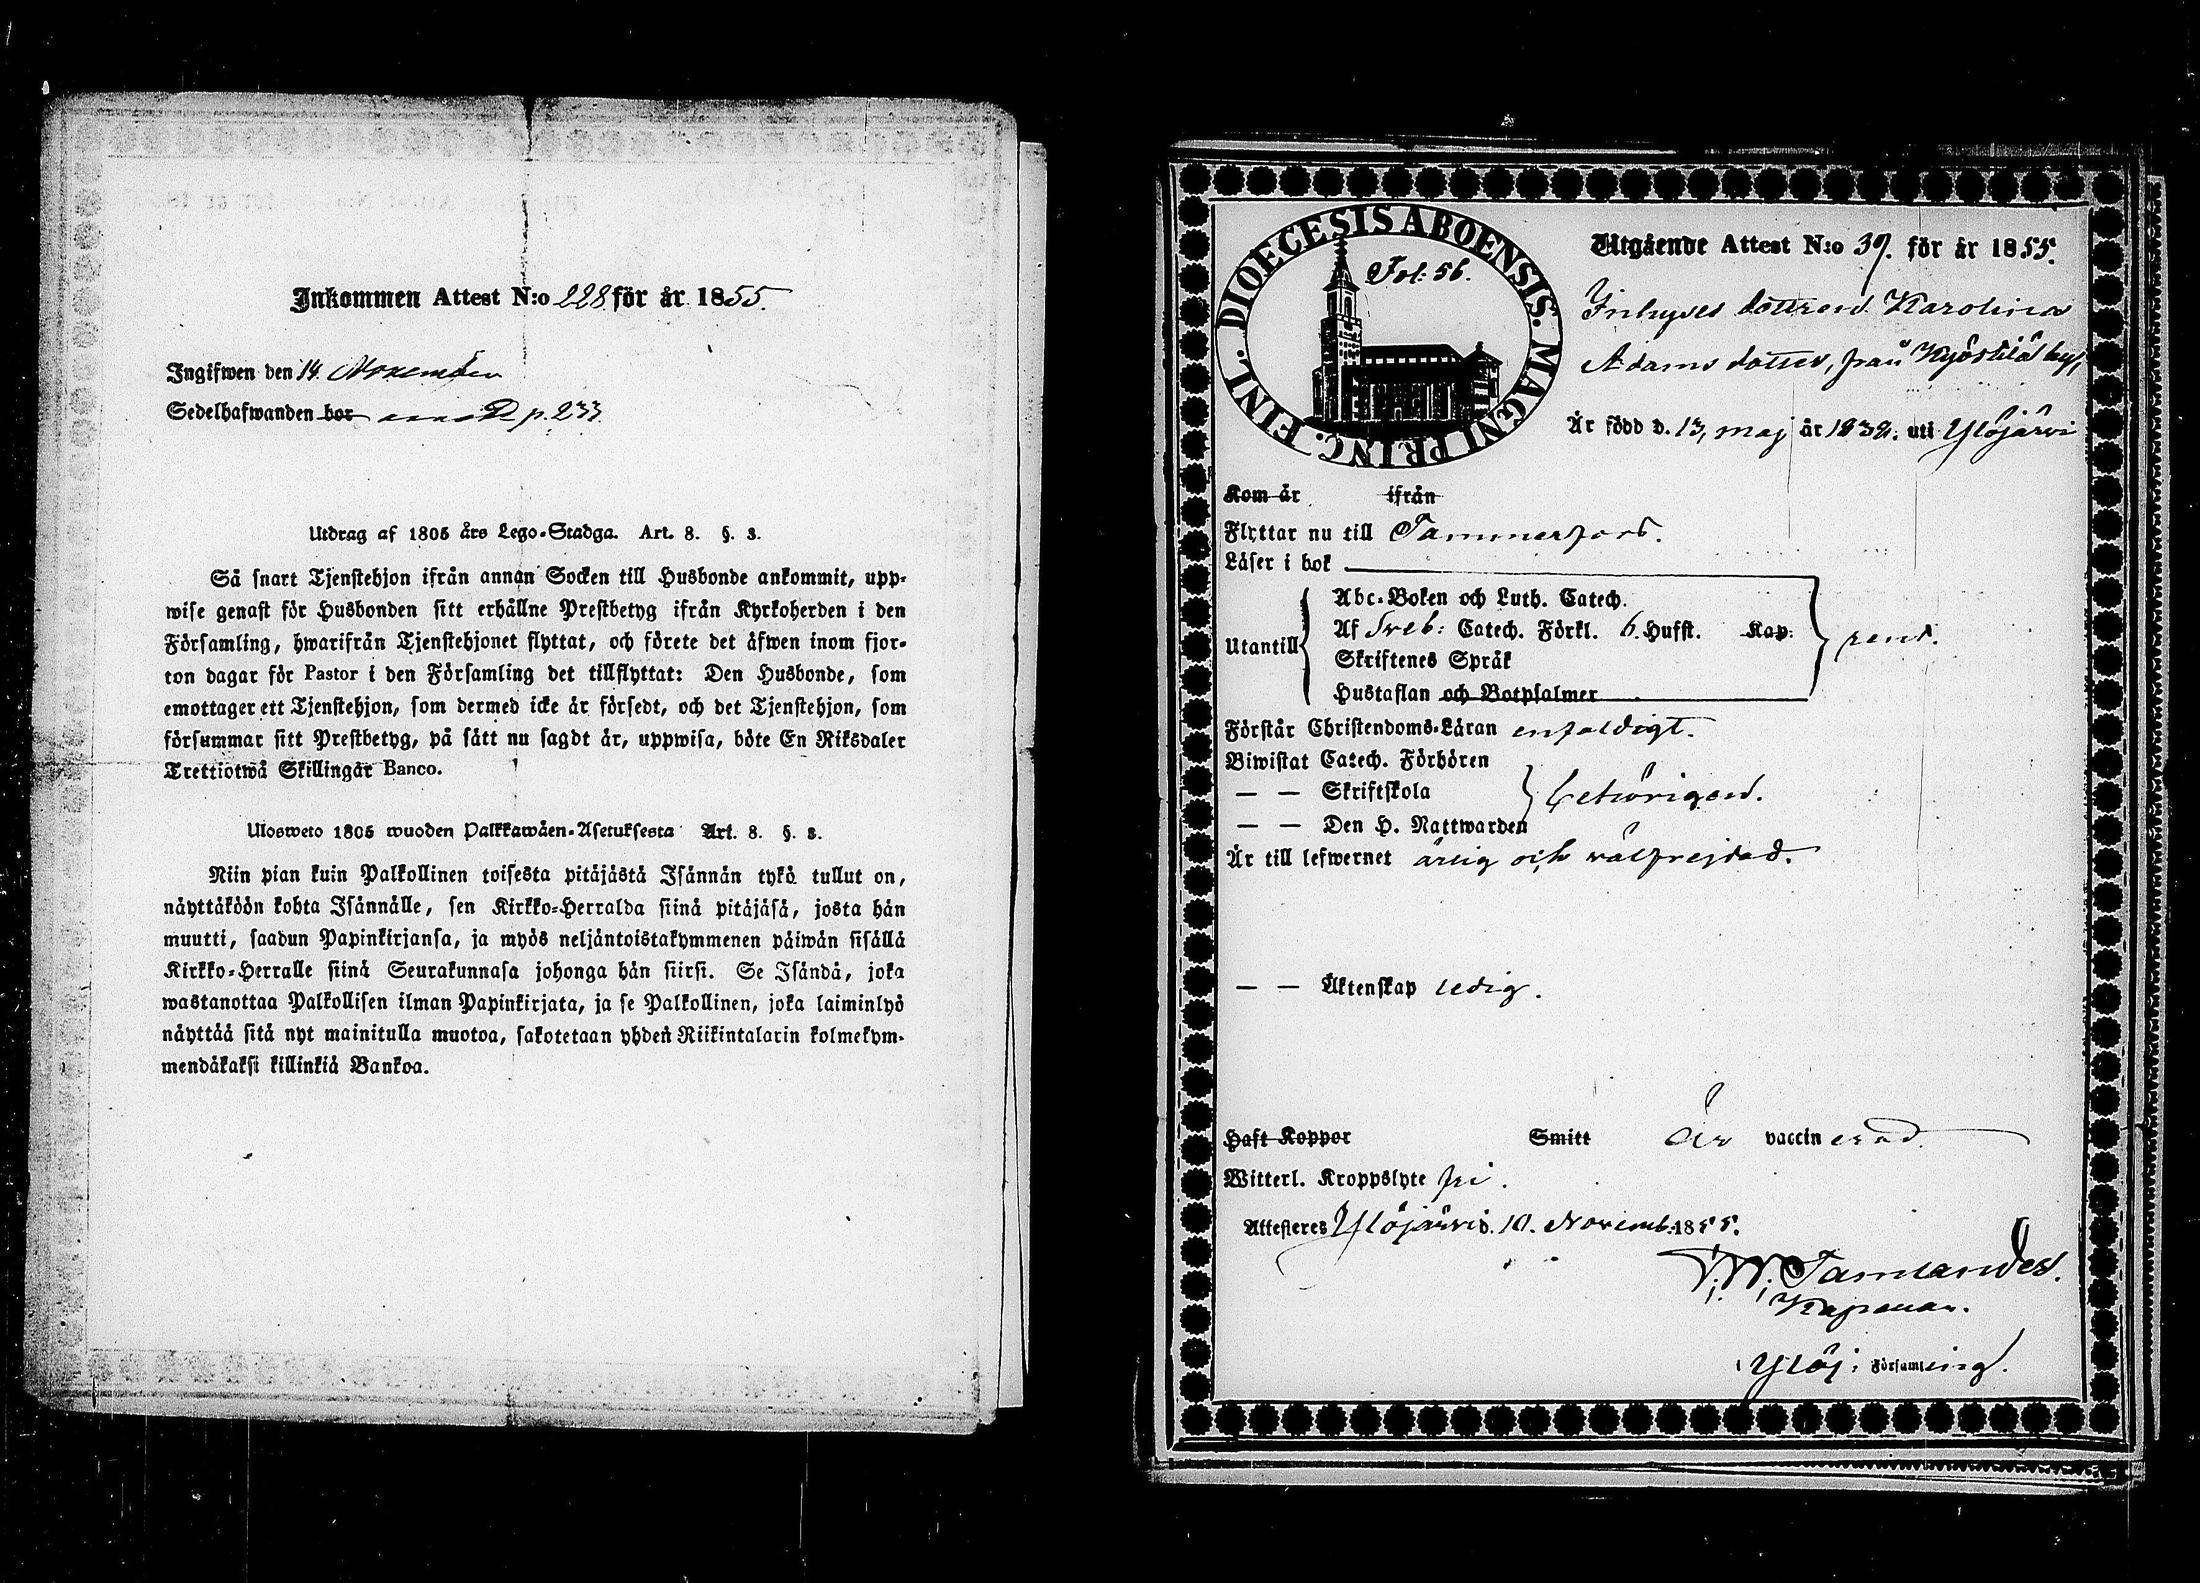 Inkommen Attest N:o 228 för år 1855.
Ingifwen den 14 November
Sedelhafwanden bor p. 233
Utdrag af 1805 års Lego-Stadga. Art. 8. §. 3.
Så snart Tjenstehjon ifrån annan Socken till Husbonde ankommit, upp-
wise genast för Husbonden sitt erhållne Prestbetyg ifrån Kyrkoherden i den
Församling, hwarifrån Tjenstehjonet flyttat, och förete det äfwen inom fjor-
ton dagar för Pastor i den Församling det tillflyttat: Den Husbonde, som
emottager ett Tjenstehjon, som dermed icke är försedt, och det Tjenstehjon, som
försummar sitt Prestbetyg, på sätt nu sagdt är, uppwisa, böte En Riksdaler
Trettiotwå Skillingar Banco.
Ulosweto 1805 wuoden Palkkawäen-Asetuksesta Art. 8. §. 3.
Niin pian kuin Palkollinen toisesta pitäjästä Isännän tykö tullut on,
näyttäköön kohta Isännälle, sen Kirkko-Herralda siinä pitäjäsä, josta hän
muutti, saadun Papinkirjansa, ja myös neljäntoistakymmenen päiwän sisällä
Kirkko-Herralle siinä Seurakunnasa johonga hän siirsi. Se Isändä, joka
wastanottaa Palkollisen ilman Papinkirjata, ja se Palkollinen, joka laiminlyö
näyttää sitä nyt mainitulla muotoa, sakotetaan yhden Riikintalarin kolmekym-
mendäkaksi killinkiä Bankoa.
DIOECESIS ABOENSIS. MAGNI PRINC. FINL.
Fol: 56.
Utgående Attest N:o 39. för år 1855.
Inhyses dottren Karolina
Adams dotter, från Kyöstilä by,
Är född d. 13, maj år 1832. uti Ylöjärvi
Kom år ifrån
Flyttar nu till Tammerfors.
Läser i bok
Abc-Boken och Luth. Catech.
Utantill Af Sveb: Catech. Förkl. 6. Hufst. Kap: rent.
Skriftenes Språk
Hustaflan och Botpsalmer
Förstår Christendoms-Läran enfaldigt.
Biwistat Catech. Förhören
— — Skriftskola behörigen.
— — Den H. Nattwarden
Är till lefwernet ärlig och välfrejdad.
— — Äktenskap ledig.
Haft Koppor Smitt Är vaccinerad
Witterl. Kroppslyte fri.
Attesteres Ylöjärvi d. 10. Novemb. 1855.
Tamlander.
Kapellan.
Ylöj: Församling.